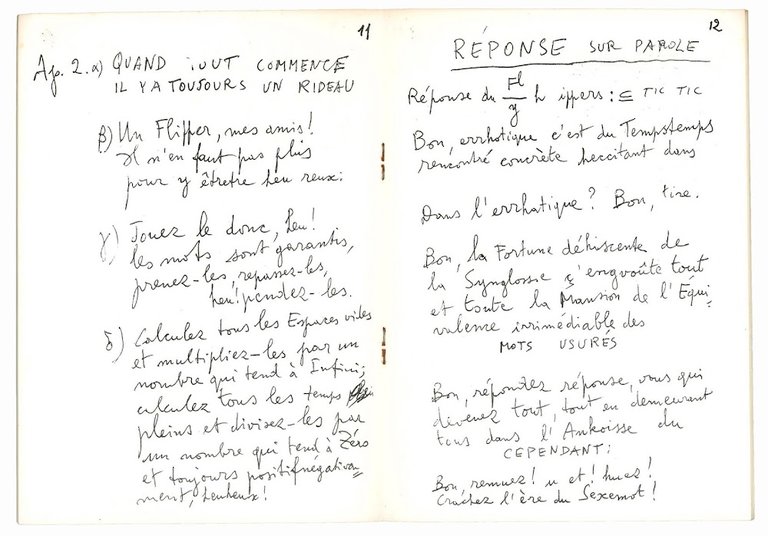 11
Ap. 2. α) QUAND TOUT COMMENCE
IL Y A TOUJOURS UN RIDEAU
β) Un Flipper, mes amis!
Il n'en faut pas plus
pour y êtretre heu reux:
γ) Jouez le donc, heu!
les mots sont garantis,
prenez-les, repassez-les,
heu! pendez-les.
δ) Calculez tous les Espaces vides
et multipliez-les par un
nombre qui tend à Infini;
calculez tous les temps
pleins et divisez-les par
un nombre qui tend à Zéro
et toujours positifnégativou=
ment, heuheux!
12
RÉPONSE SUR PAROLE
Réponse du Fl/y h ippers : ⊆ TIC TIC
Bon, errhotique c'est du Tempstemps
rencontré concrète heccitant dans
Dans l'errhatique? Bon, tire.
Bon, la Fortune déhiscente de
la Synglosse s'engvoûte tout
et toute la Mansion de l'Equi-
valence irrimédiable des
MOTS USURÉS
Bon, répondez réponse, vous qui
devenez tout, tout en demeurant
tous dans l'Ankoisse du
CEPENDANT:
Bon remuez! u et! huez!
Crachez l'ère du Sexemot!